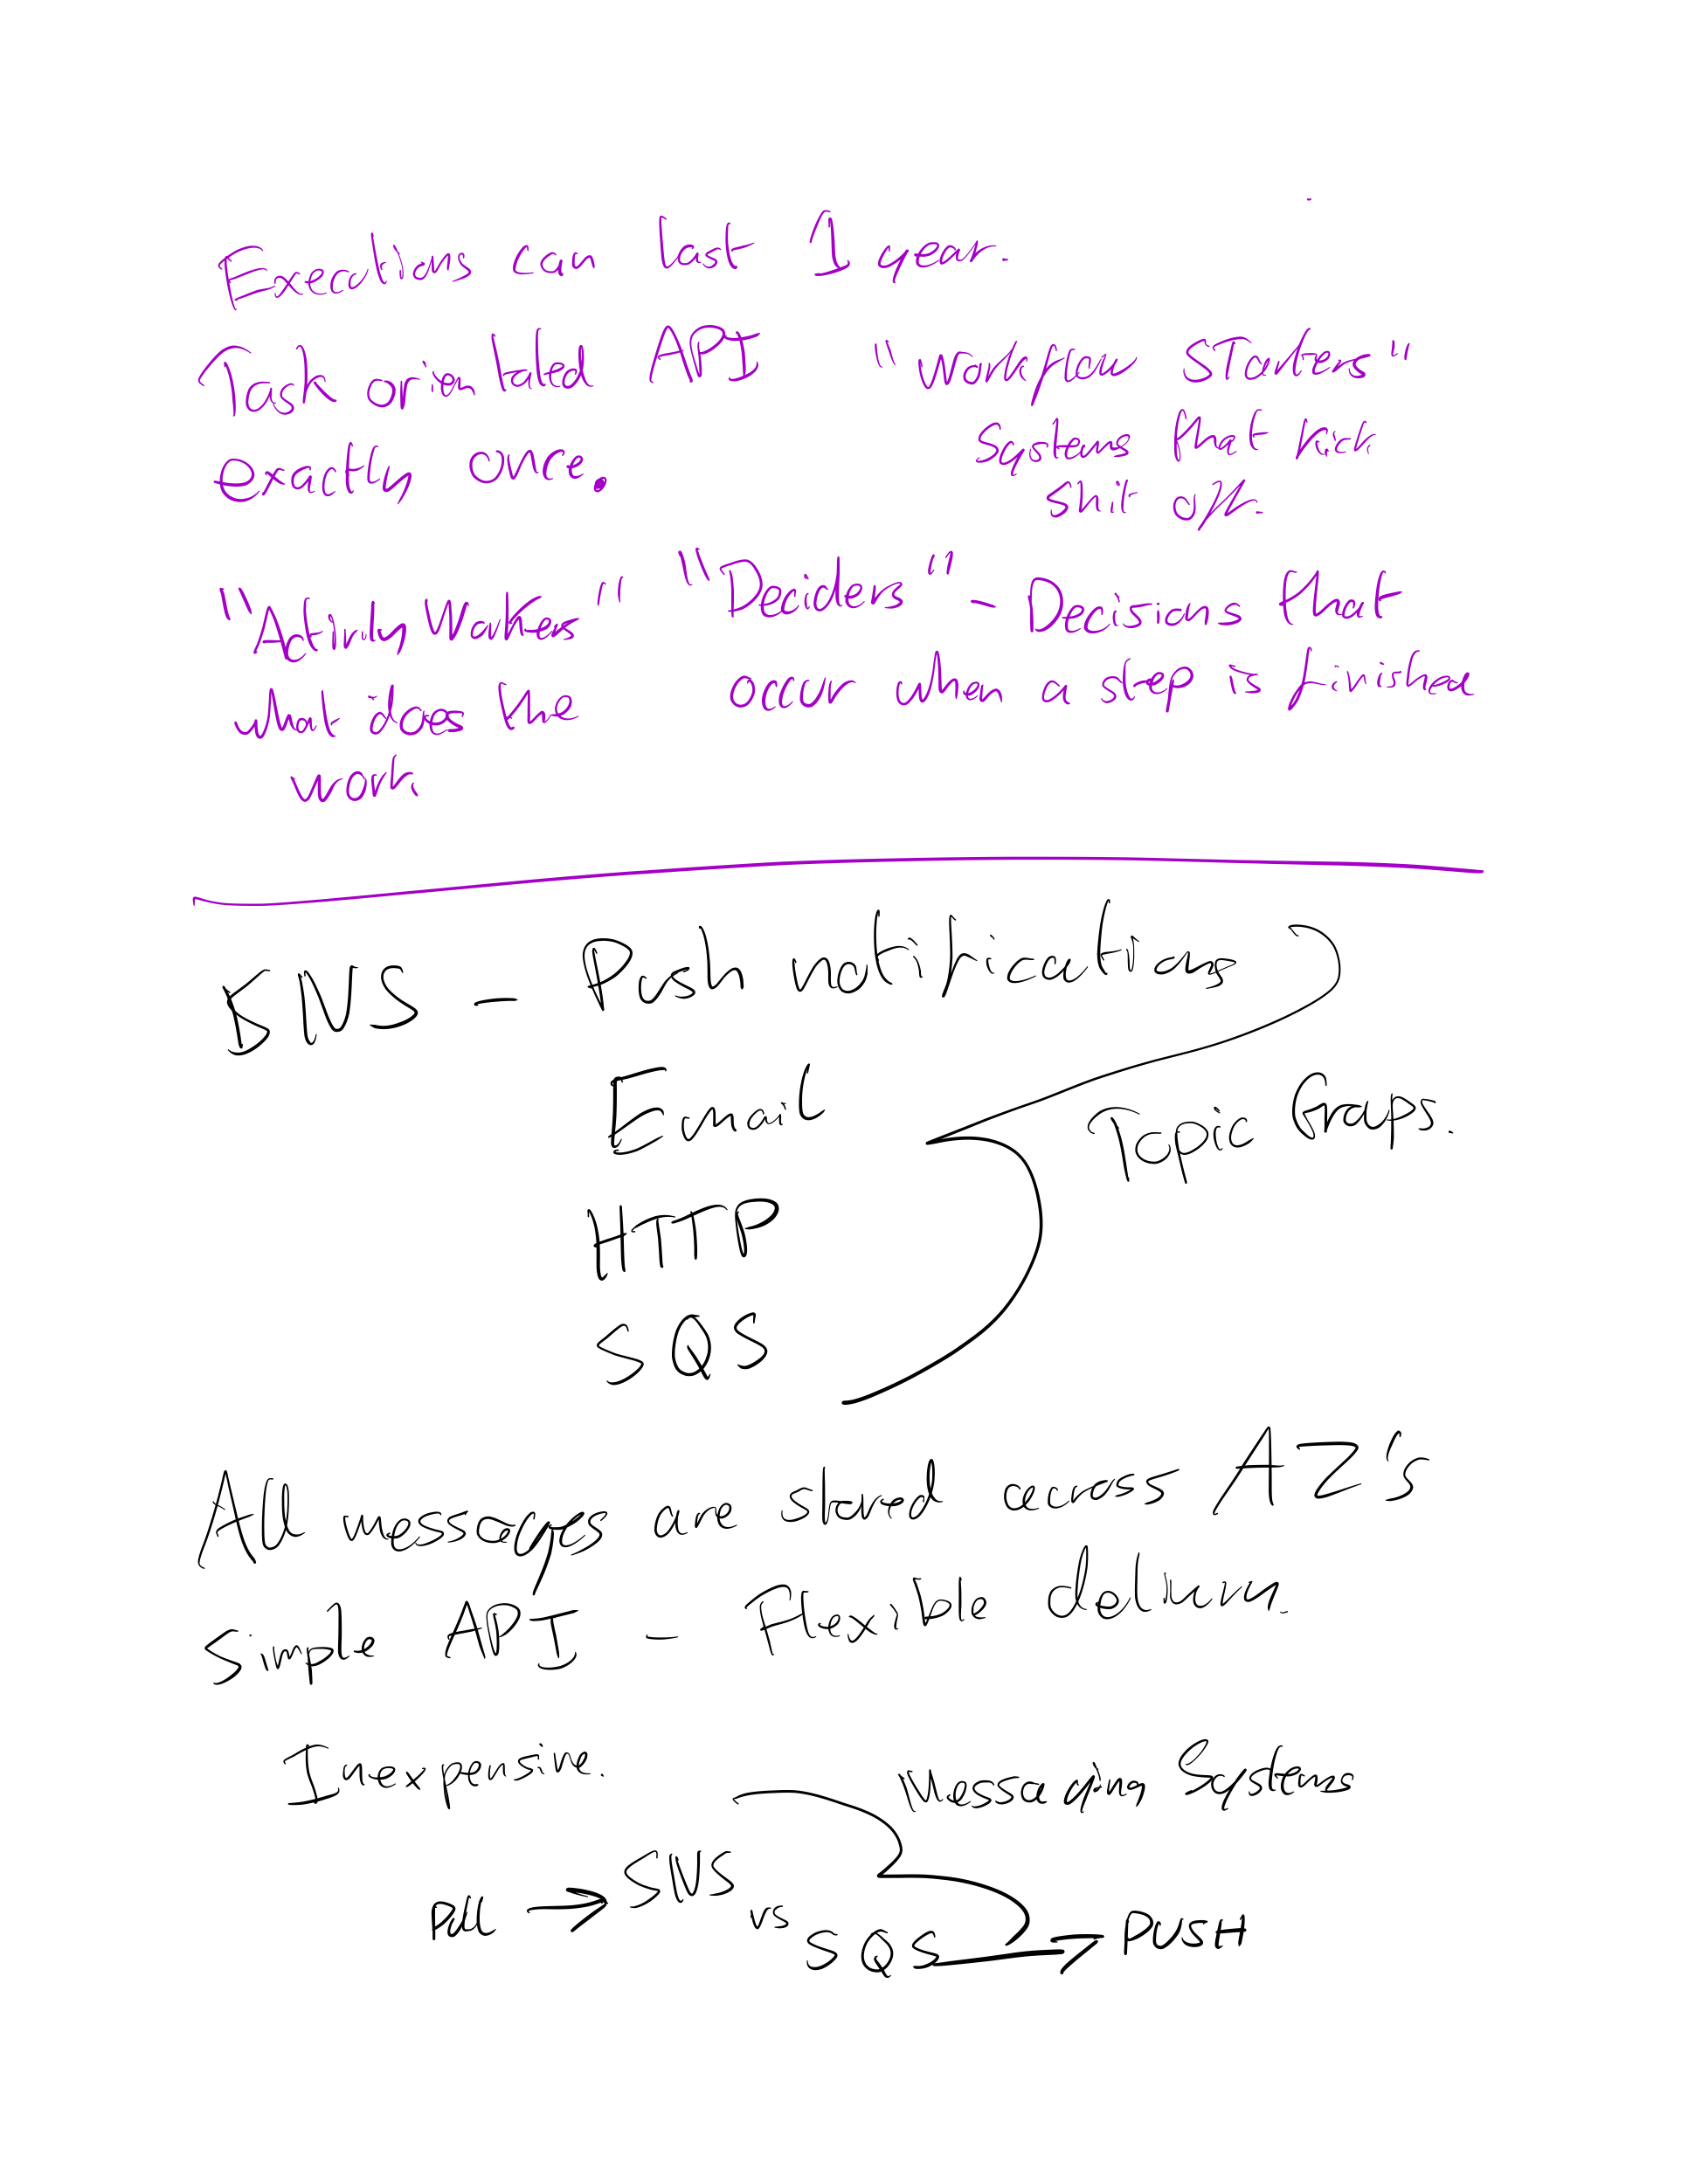 Executions can last 1 year.
Task orientated API
exactly once.
"Workflow Starters"
Systems that kick
shit off.
"Activity Workers"
what does the
work.
"Deciders" - Decisions that
occur when a step is finished
SNS - Push notifications
Email
HTTP
SQS
Topic Groups.
All messages are stored across AZ's
Simple API - Flexible delivery.
Inexpensive.
Messaging Systems
Pull → SNS
vs
SQS → PUSH